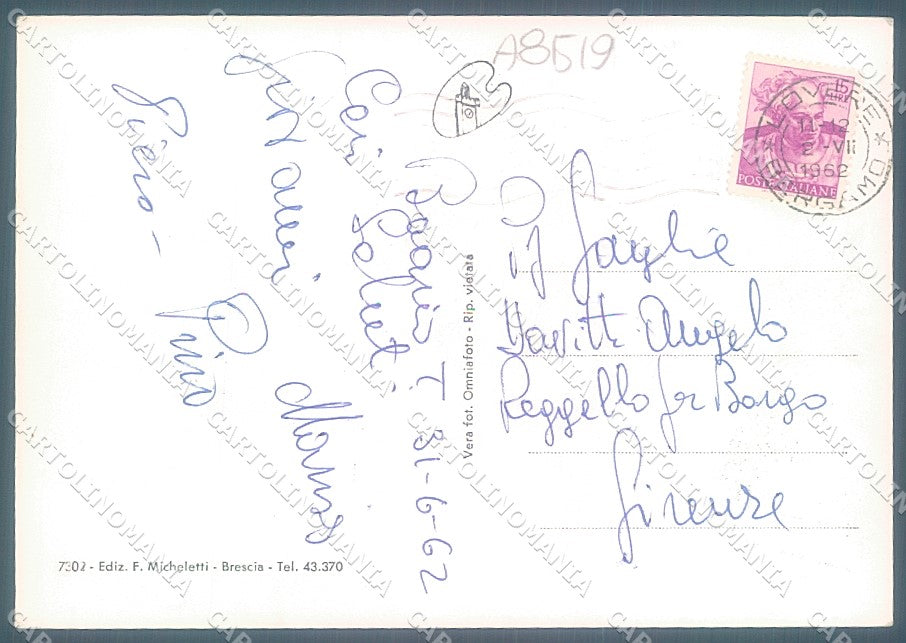 A8519
Boario T. 31-6-62
Cari Saluti
Giovanni
Piero -
Pino
15
LIRE
POSTE ITALIANE
LOVERE
11-12
2 VII
1962
* BERGAMO *
Vera fot. Omniafoto - Rip. vietata
Famiglia
Angelo
Reggello per Borgo
Firenze
7302 - Ediz. F. Micheletti - Brescia - Tel. 43.370
CARTOLINOMANIA